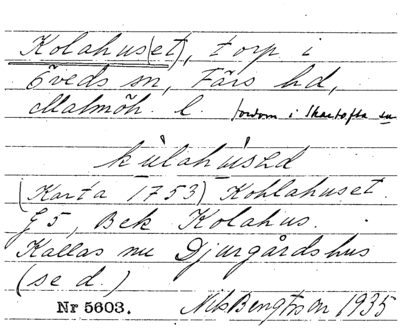 Kolahus(et), torp i
Öveds sn, Färs hd,
Malmöh. l. fordom i Skartofta sn
kúlahúsəd
(Karta 1753) Kohlahuset.
G5, Bek Kolahus.
Kallas nu Djurgårdshus
(se d.)
Nr 5603. Nils Bengtsson 1935